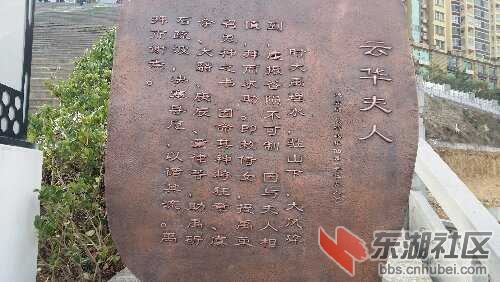 云华夫人
时大禹理水，驻山下，大风卒
到，崖振谷陨不可制。因与夫人相
值，拜而求助。即敕侍女，授禹策
召鬼神之书，因命其神将狂章、虞
余、大翳、庚辰、童律者，助禹斫
石疏波，决塞导厄，以循其流。禹
拜而谢焉。
东湖社区
bbs.cnhubei.com